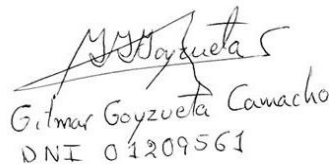 Goyzueta
Gilmar Goyzueta Camacho
DNI 01209561